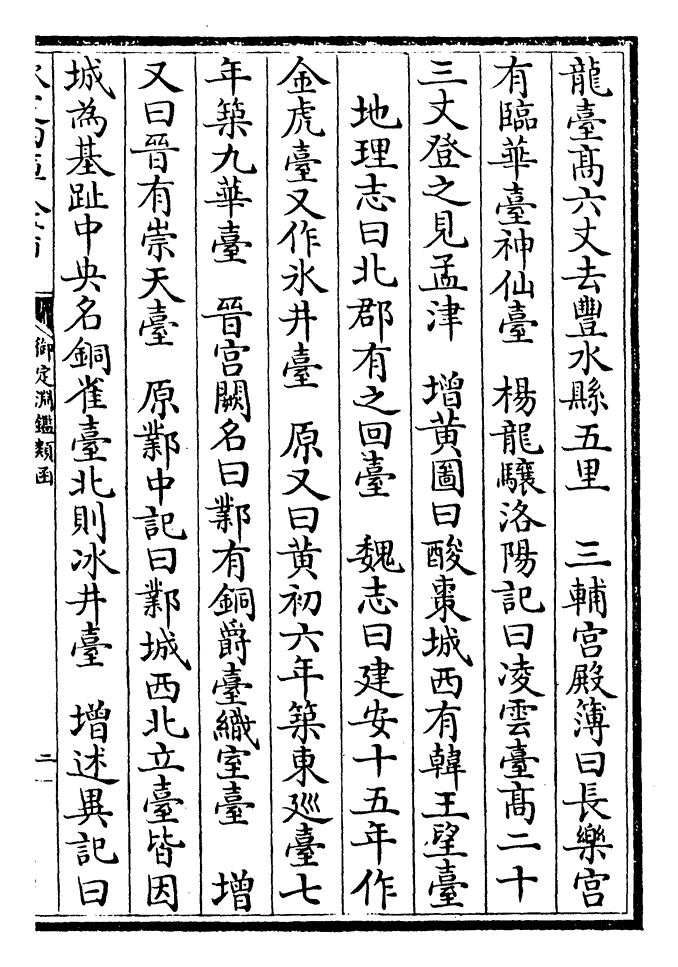 龍臺髙六丈去豐水縣五里　三輔宫殿簿曰長樂宫
有臨華臺神仙臺　楊龍驤洛陽記曰凌雲臺髙二十
三丈登之見孟津　增黄圖曰酸棗城西有韓王望臺
地理志曰北郡有之回臺　魏志曰建安十五年作
金虎臺又作氷井臺　原又曰黄初六年築東廵臺七
年築九華臺　晉宫闕名曰鄴有銅爵臺織室臺　增
又曰晉有崇天臺　原鄴中記曰鄴城西北立臺皆因
城為基趾中央名銅雀臺北則冰井臺　增述異記曰
御定淵鑑類函
二